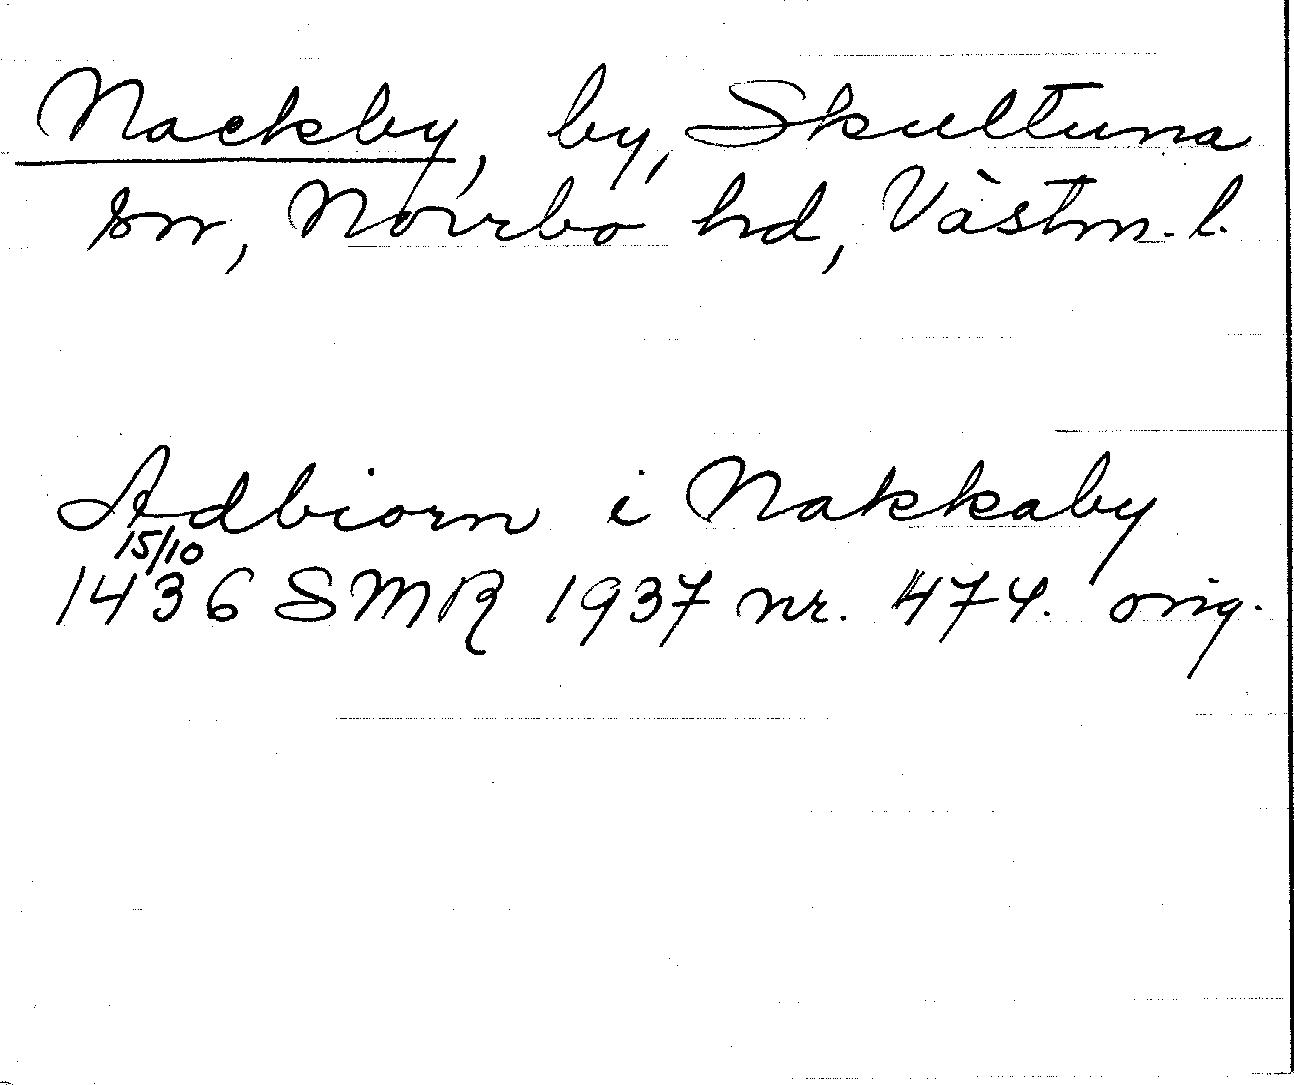 Nackby, by, Skultuna
sn, Norrbo hd, Västm. l.
Adbiorn i Nakkaby
15/10
1436 SMR 1937 nr. 474. orig.